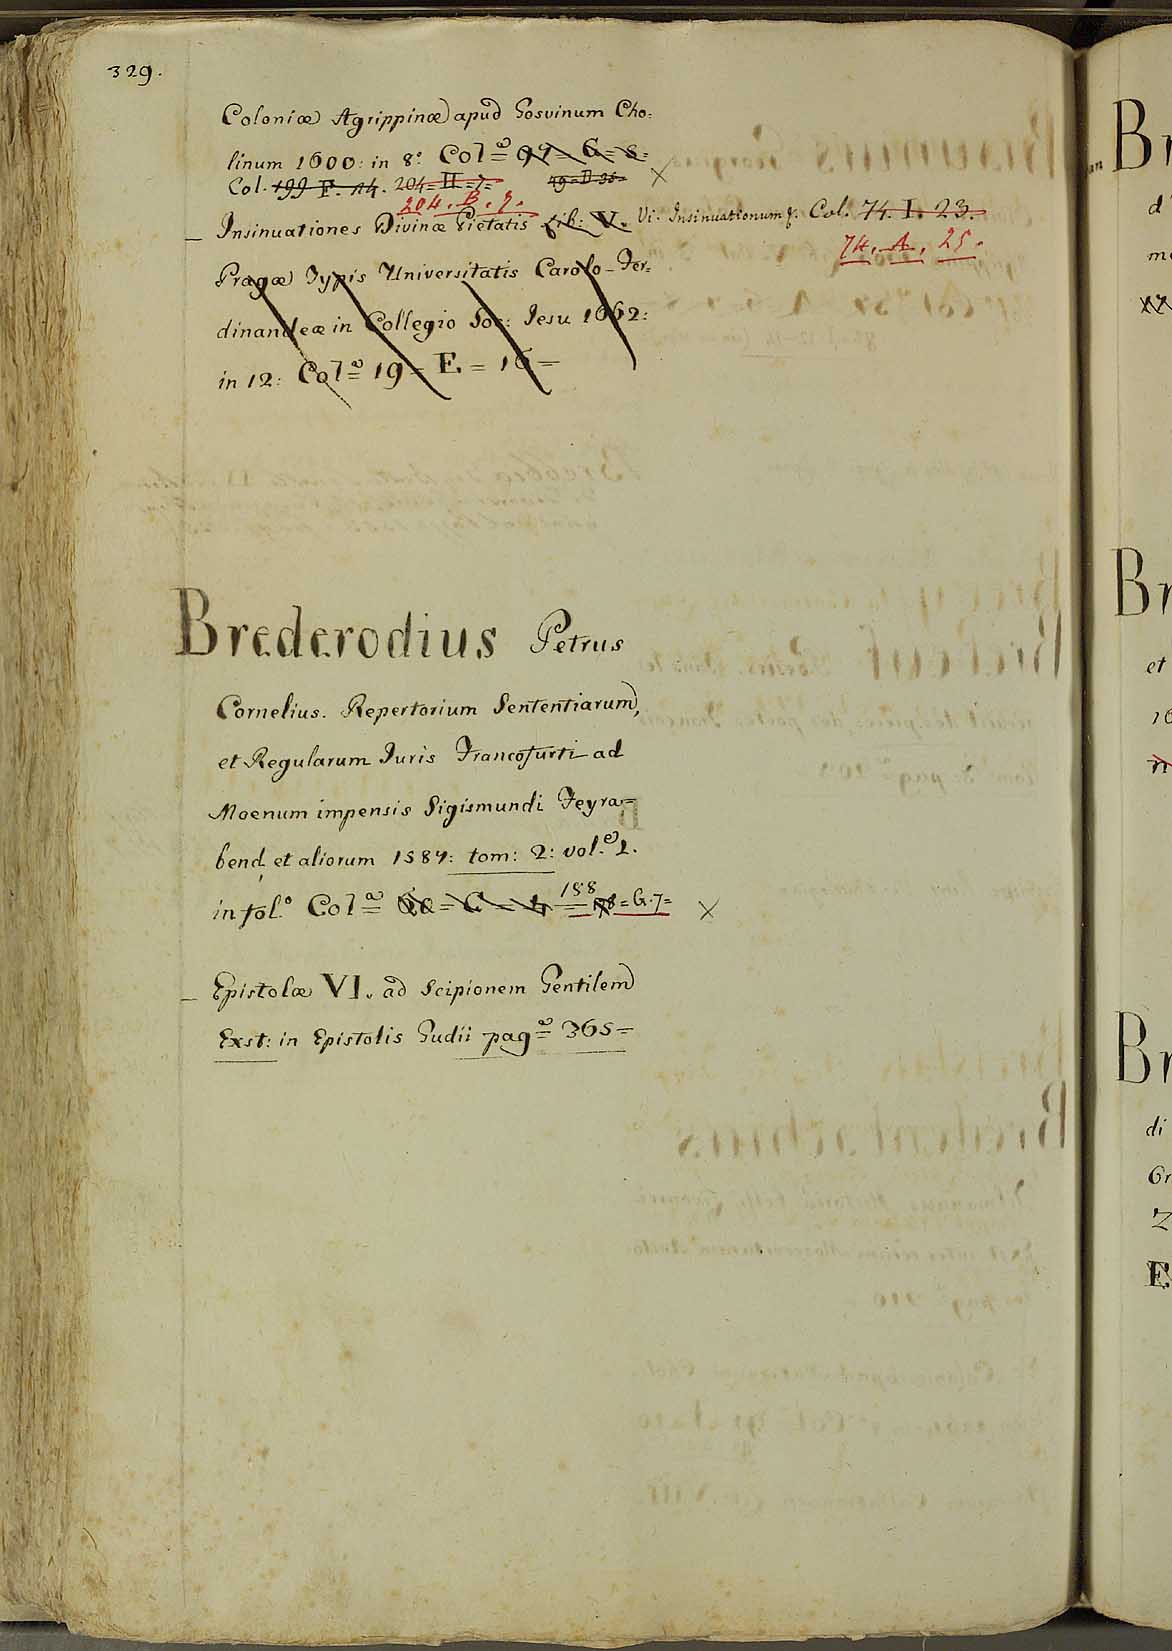 329.
Coloniæ Agrippinæ apud Gosvinum Cho:
linum 1600: in 8º Colª = 99 = G = 8 =
Col. 199 F. 14. 204 = H = 7 = 49 = D 36 = X
204. B. 9.
— Insinuationes Divinæ Pietatis Lib: V. Vi. Insinuationum &. Col. 74. I. 23.
74. A. 25.
Pragæ Typis Universitatis Carolo-Fer:
dinandeæ in Collegio Soc: Iesu 1662:
in 12: Colª = 19 = E = 16 =
Brederodius Petrus
Cornelius. Repertorium Sententiarum,
et Regularum Iuris Francofurti ad
Moenum impensis Sigismundi Feyra=
bend, et aliorum 1587: tom: 2: vol.e 1.
in fol.º Colª = C = 4 = 158 = G. 7 = X
— Epistolæ VI. ad Scipionem Gentilem
Exst: in Epistolis Gudii pagª = 365 =
Br
d'
Br
et
Br
di
Gr
E